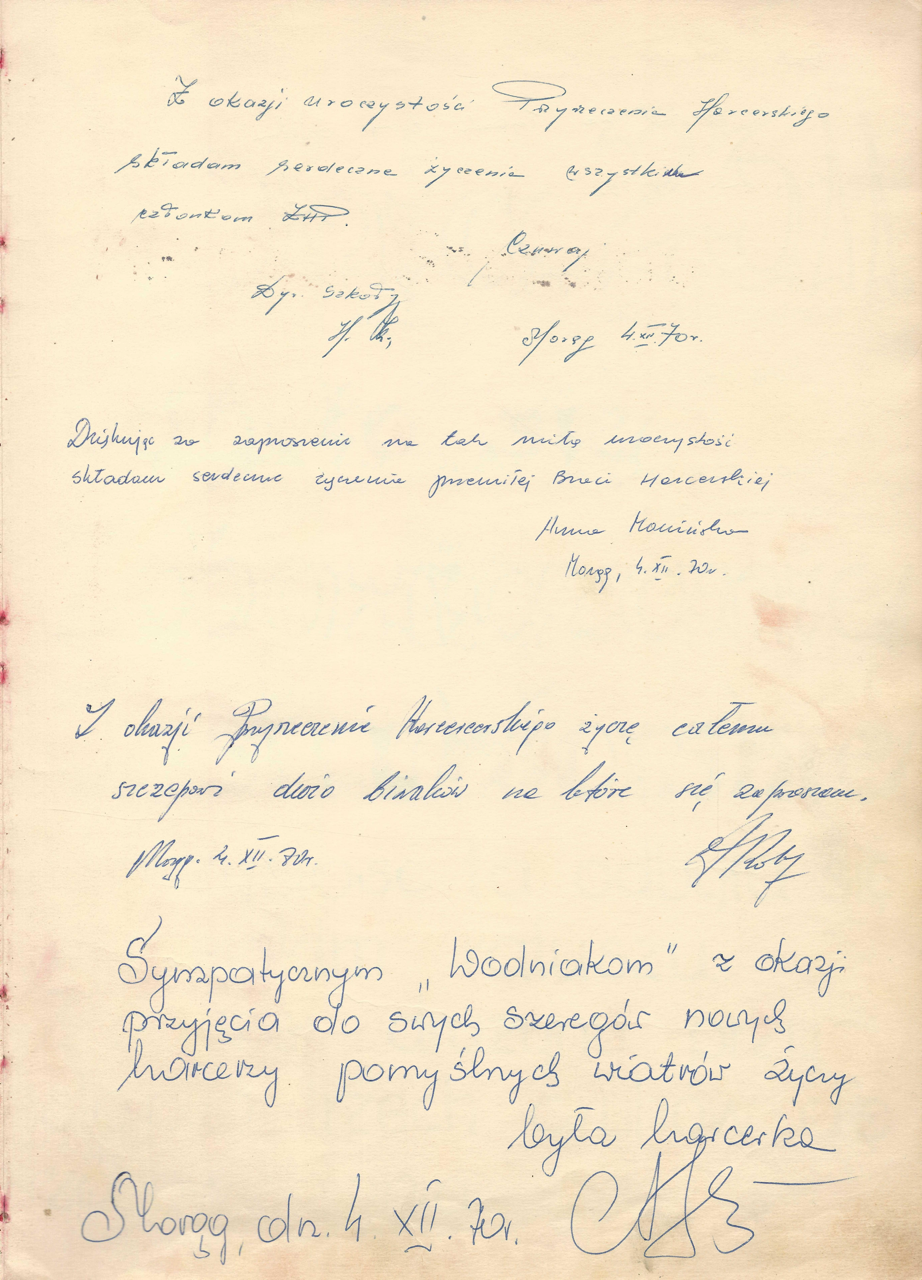 Z okazji uroczystości Przyrzeczenia Harcerskiego
składam serdeczne życzenia wszystkim
członkom ZHP
Czuwaj
Dyr. szkoły
Morąg 4.XII.70r.
Dziękując za zaproszenie na tak miłą uroczystość
składam serdeczne życzenia przemiłej Braci Harcerskiej
Anna
Morąg, 4.XII.70r.
Z okazji Przyrzeczenia Harcererskiego życzę całemu
szczepowi dużo biwaków na które się zapraszam.
Morąg. 4.XII.70r.
Sympatycznym „Wodniakom" z okazji
przyjęcia do swych szeregów nowych
harcerzy pomyślnych wiatrów życzy
była harcerka
Morąg, dn. 4.XII.70r.